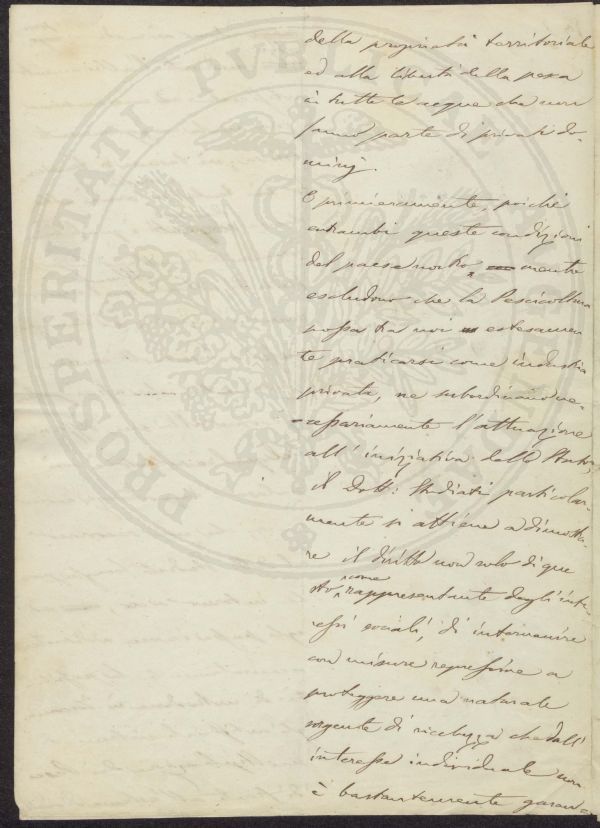 della proprietà territoriale
ed alla libertà della pesca
in tutte le acque che non
fanno parte di privati do-
minij.
E primieramente, poichè
entrambi queste condizioni
del paese nostro, mentre
escludono che la Pescicoltura
possa tra noi estesamen-
te praticarsi come industria
privata, ne subordinano ne-
cessariamente l'attuazione
all' iniziativa dello Stato,
il Dott: Studiati particolar-
mente si attiene a dimostra-
re il diritto non solo di que
sto come rappresentante degli inte-
ressi sociali, di intervenire
con misure repressive a
proteggere una naturale
sorgente di ricchezza che dall'
interesse individuale non
è bastantemente garan
PROSPERITATI PVBLICAE